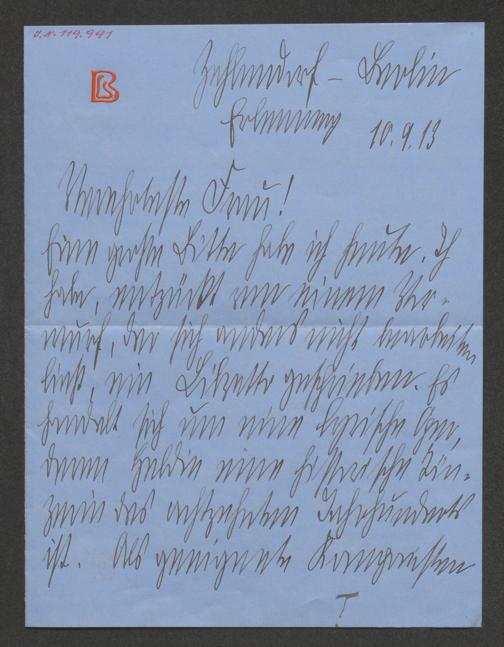 J.N. 119.991
B
Zehlendorf – Berlin
Erlenweg 10.9.13
Verehrteste Frau!
Eine grosse Bitte habe ich heute. Ich
habe, entzückt von einem Vor-
wurf, der sich anders nicht bearbeiten
liess, ein Libretto geschrieben. Es
handelt sich um eine lyrische Oper,
deren Heldin eine historische Tän-
zerin des achtzehnten Jahrhunderts
ist. Als geeignete Komponisten